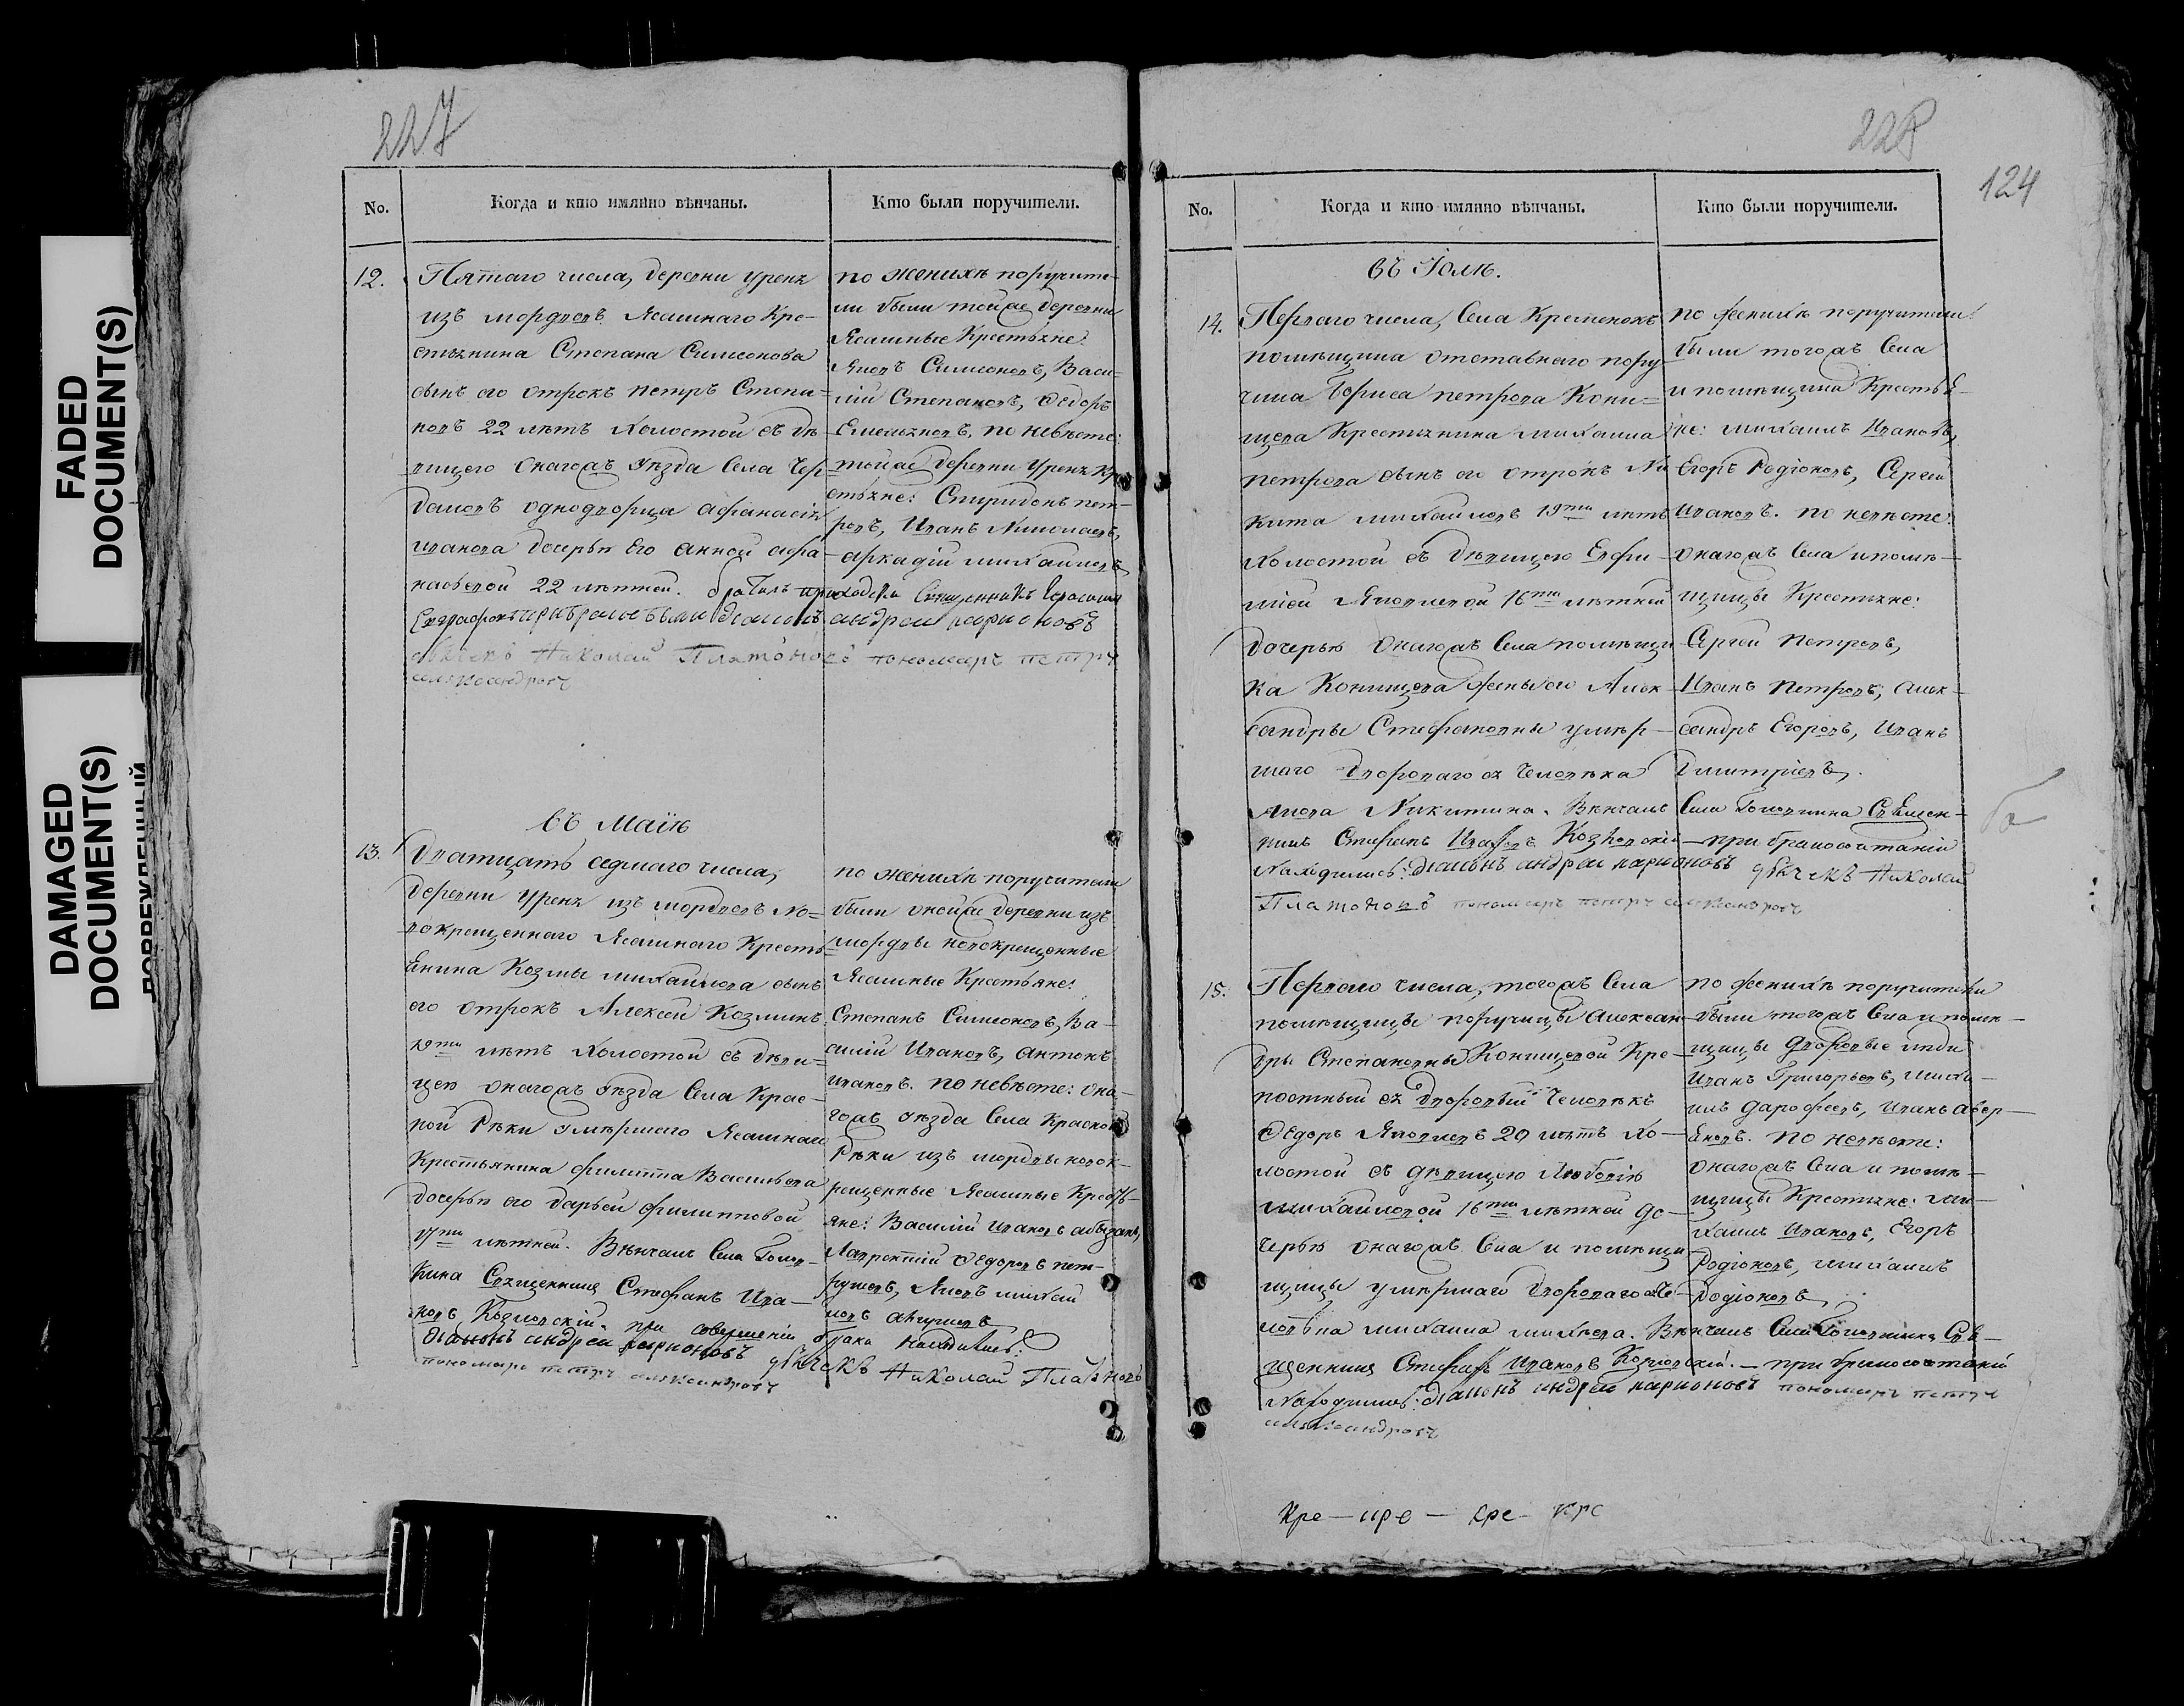 FADED
DOCUMENT(S)
DAMAGED
DOCUMENT(S)
227
No.
Когда и кто имянно вѣнчаны.
Кто были поручители.
12.
Пятаго числа, деревни Уренъ
изъ мордвовъ Ясашнаго Кре-
стьянина Степана Симеонова
сынъ его отрокъ петръ Степа-
новъ 22 лѣтъ холостой съ дѣ-
вицею онагожъ уѣзда Села Чер
однодворца афанасія
иванова дочерью Его анной афа-
насьевой 22 лѣтней.
дьячекъ Николай Платоновъ пономарь петръ
александровъ
по женихѣ поручите-
ли были тойже деревни
Ясашные Крестьяне:
Яковъ Симионовъ, Васи-
лій Степановъ, Ѳедоръ
Емельяновъ, по невѣсте:
тойже деревни Уренъ Кр
стьяне: Спиридонъ пет-
ровъ, Иванъ Николаевъ,
аркадій михайловъ
андреи ларионовъ
въ Маiѣ
13.
Дватцать седмаго числа,
деревни Уренъ изъ мордвовъ но-
вокрещеннаго Ясашнаго Кресть
Янина Козмы михайлова сынъ
его отрокъ Алексей Козминъ
19ти лѣтъ холостой съ дѣви-
цею онагожъ уѣзда Села Крас-
ной Рѣки умѣршаго Ясашнаго
Крестьянина филиппа Васильева
дочерью его дарьей филипповой
17ти лѣтней. Вѣнчалъ Села Голов-
кина Священникъ Стефанъ Ива-
новъ Козловскій. при совершеніи брака находились:
дьяконъ андреи ларионовъ дьячекъ Николай Платоновъ
пономарь петръ александровъ
по женихѣ поручители
были онойже деревни изъ
мордвы новокрещенные
Ясашные Крестьяне:
Степанъ Симионовъ, Ва-
силій Ивановъ, антонъ
ивановъ. по невѣсте: она-
гожъ уѣзда Села Красной
Рѣки изъ мордвы новок-
рещенные Ясашные Кресть-
яне: Василій Ивановъ
Лаврентій Ѳедоровъ пет-
рушовъ, Яковъ михай
ловъ
228
124
No.
Когда и кто имянно вѣнчаны.
Кто были поручители.
въ Iюлѣ.
14.
Перваго числа, Села Кременокъ
помѣщика отставнаго пору-
чика Бориса петрова Кони-
щева Крестьянина михаила
петрова сынъ его отрокъ Ни
кита михайловъ 19ти лѣтъ
холостой съ дѣвицею Евфи-
міей Яковлевой 16ти лѣтней
дочерью онагожъ Села помѣщи
ка Конищева жены его Алек-
сандры Стефановны умѣр-
шаго дворовагожъ человѣка
Якова Никитина. Вѣнчалъ Села Головкина Священ-
никъ Стефанъ Ивановъ Козловскій - при бракосочитаніи
Находились: дьяконъ андреи ларионовъ дьячекъ Николай
Платоновъ пономарь петръ александровъ
по женихѣ поручители:
были тогожъ Села
и помѣщика Крестья-
не: михаилъ Ивановъ,
Егоръ Родiоновъ, Сергей
Ивановъ. по невѣсте:
онагожъ Села и помѣ-
щицы Крестьяне:
Сергей петровъ,
Иванъ петровъ, алек-
сандръ Егоровъ, Иванъ
Дмитріевъ.
15.
Перваго числа, тогожъ Села
помѣщицы поручицы Алексан
дры Степановны Конищевой Кре-
постныи дворовыи человѣкъ
Ѳедоръ Яковлевъ 20 лѣтъ хо-
лостой съ дѣвицею Любовію
михайловой 16ти лѣтней до-
черью онагожъ Села и помѣщи
щицы умѣршаго дворовагожъ че-
ловѣка михаила Вѣнчалъ Села Головкина Свя-
щенникъ Стефанъ Ивановъ Козловскій. - при бракосочитаніи
Находились: дьяконъ андреи ларионовъ пономарь петръ
александровъ
по женихѣ поручители
были тогожъ Села и помѣ-
щицы дворовые люди
Иванъ Григорьевъ, миха-
илъ дарофеевъ, Иванъ авер-
яновъ. по невѣсте:
онагожъ Села и помѣ-
щицы Крестьяне: ми-
хаилъ Ивановъ, Егоръ
Родiоновъ, михаилъ
Родiоновъ